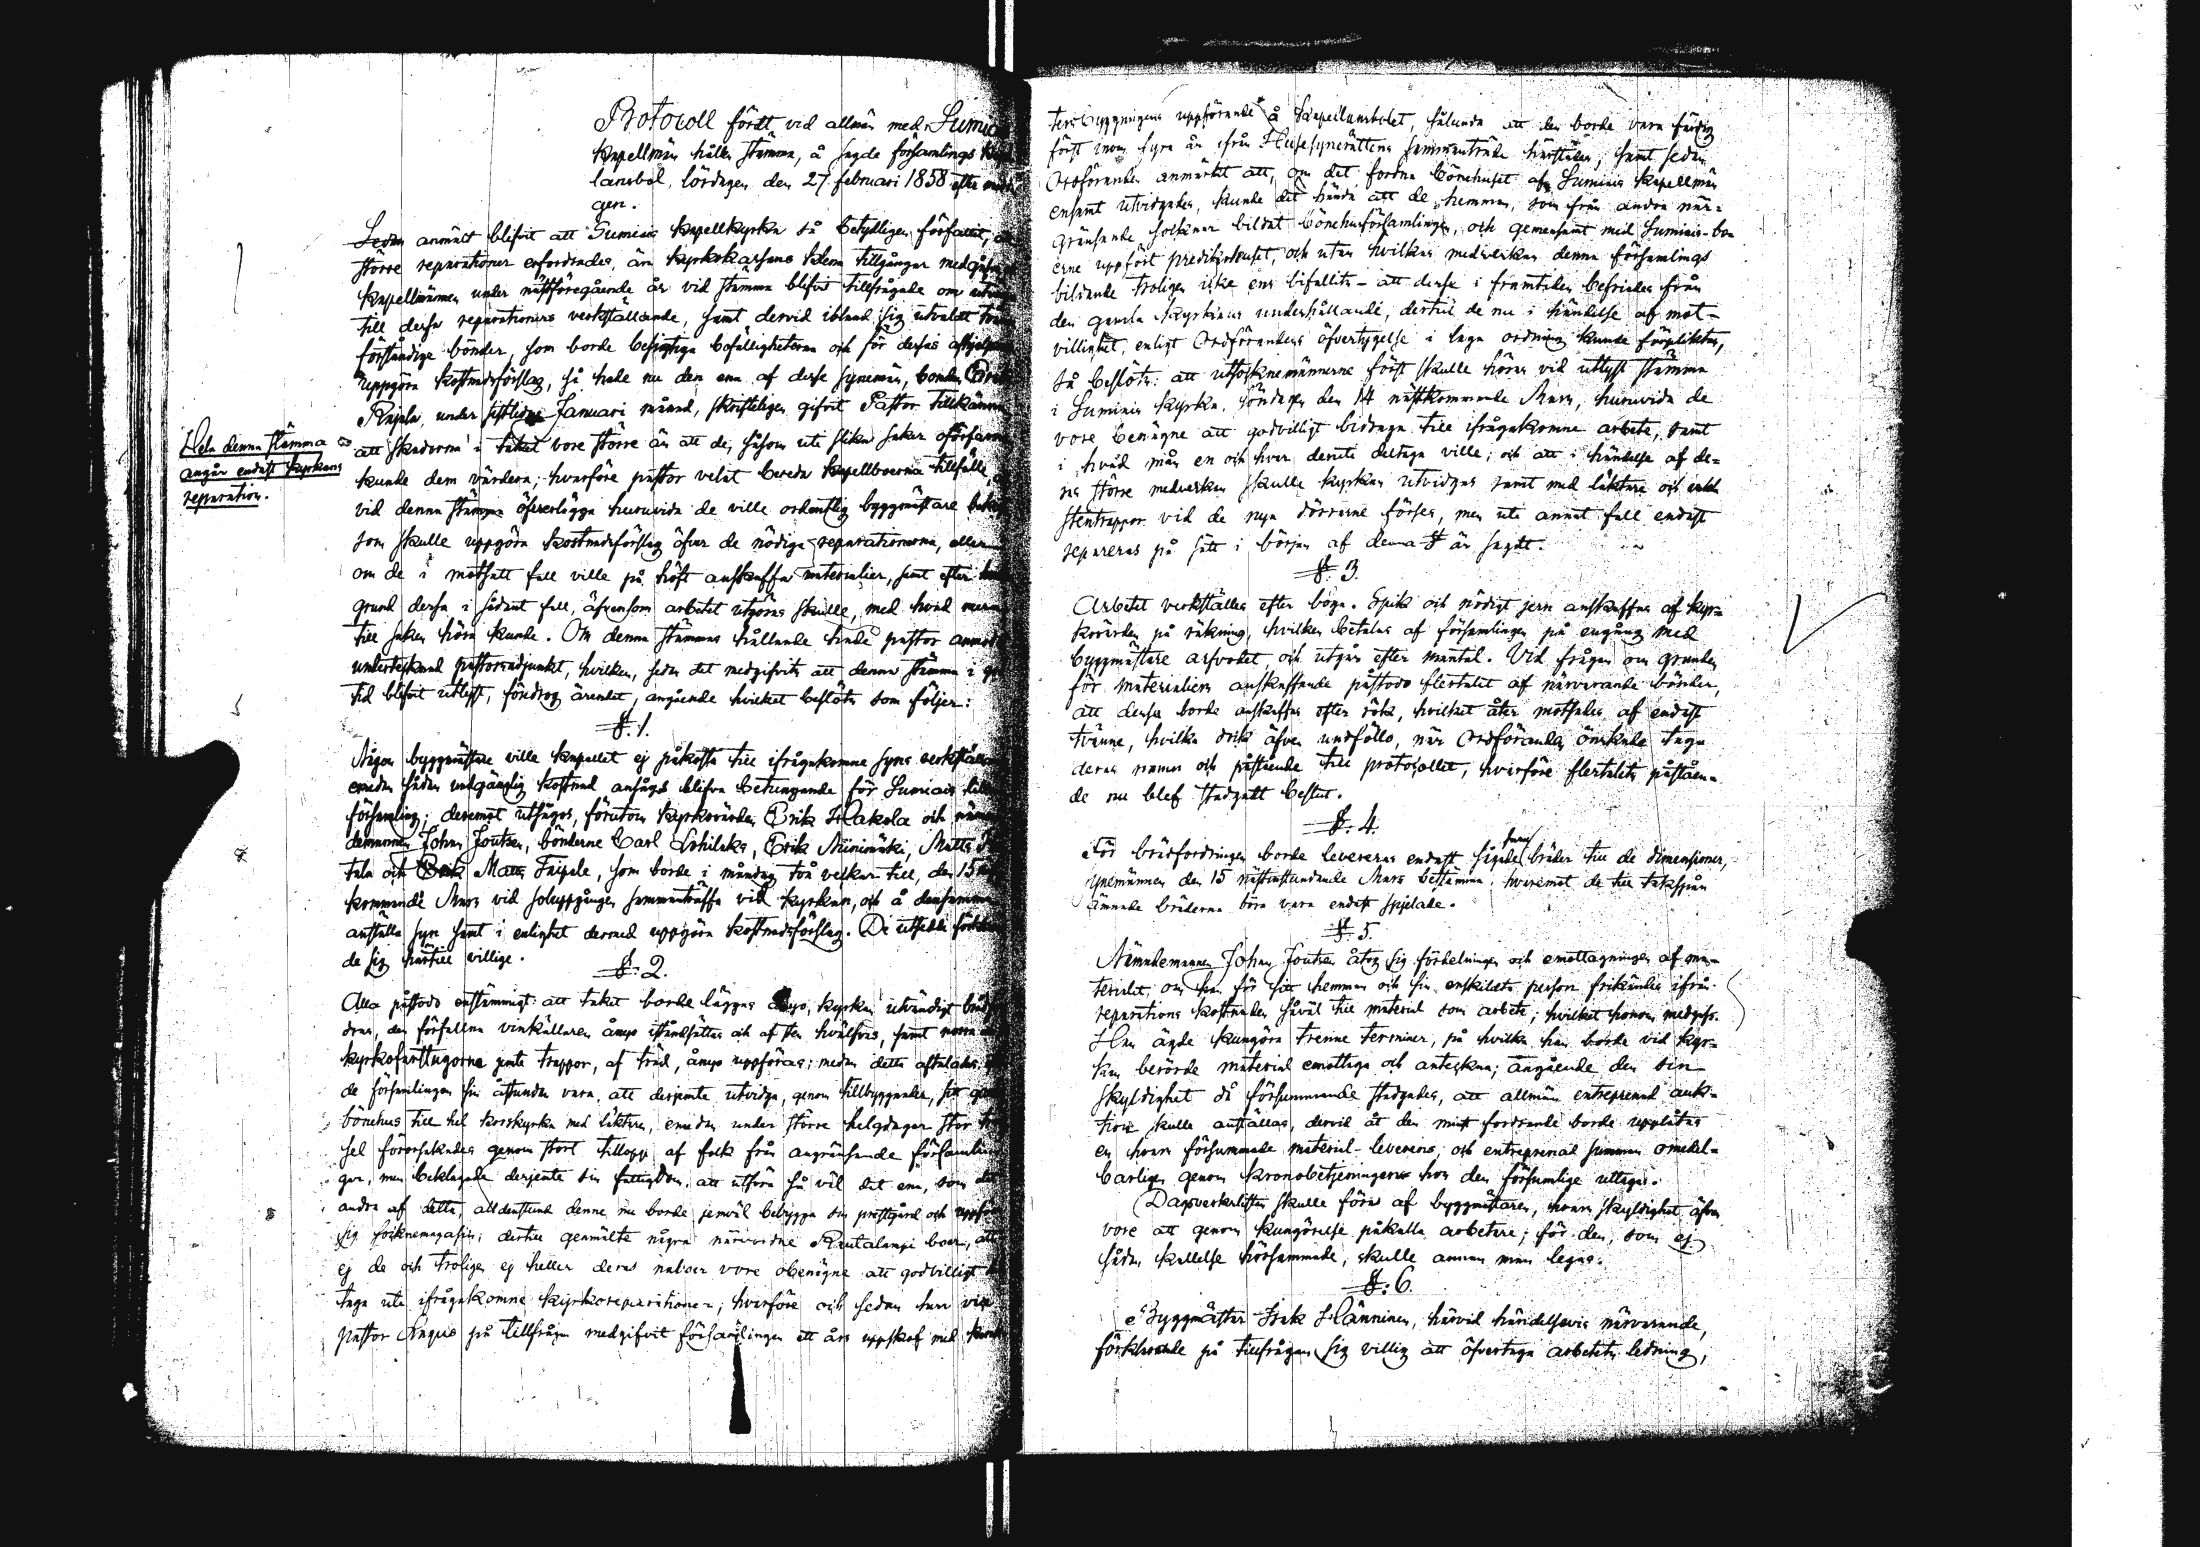 Protocoll fördt vid allmän med Sumiais
kapellmän hållen stämma, å sagde församlings kapel
lansbol, lördagen den 27 februari 1858 efter middagen.
Sedan anmält blifvit att Sumiais kapellkyrka så betydligen förfallit, att
större reparationer erfordrades, än kyrkokassans klena tillgångar medgåfvo,
kapellmännen under nästföregående år vid stämma blifvit tillfrågade om
till dessa reparationers verkställande, samt dervid ibland sig utvaldt
förståndige bönder, som borde besigtiga bofälligheterna och för dessas
uppgöra kostnadsförslag, så hade nu den ena af desse synemän, bonden Erik
under sistlidne Januari månad, skrifteligen gifvit Pastor tillkänna
Hela denna stämma
angår endast kyrkans
reparation.
att skadorna i taket vore större än att de, såsom uti slika saker oförfarne
kunde dem värdera; hvarföre pastor velat bereda kapellboerna tillfälle,
vid denna stämma öfverlägga huruvida de ville ordentlig byggmästare
som skulle uppgöra kostnadsförslag öfver de nödiga reparationerna, eller
om de i motsatt fall ville på höft anskaffa materialier, samt efter
grund dessa i sådant fall, äfvensom arbetet utgöras skulle, med hvad mera
till saken höra kunde. Om denna stämmas hållande hade pastor
undertecknad pastorsadjunkt, hvilken, sedan det medgifvits att denna stämma i
tid blifvit utlyst, föredrog ärendet, angående hvilket beslöts som följer:
§. 1.
Någon byggmästare ville kapellet ej påkosta till ifrågakomne syns
emedan sådan undgänglig kostnad ansågs blifva betungande för Sumiais
församling; deremot utsågos, förutom kyrkovärden Erik Hakola och
demannen Johan Joutsen, bönderne Carl Erik Niinimäki, Matts
tala och Matts Taipale, som borde i måndag två veckor till, den 15
kommande Mars vid soluppgången sammanträffa vid kyrkan, och å densamma
anställa syn samt i enlighet dermed uppgöra kostnadsförslag. De utsedde
de sig härtill villige.
§. 2.
Alla påstodo enstämmigt: att taket borde läggas ånyo, kyrkan utvändigt
dras, den förfallna vinkällaren ånyo iståndsättas och af sten hvälfvas, samt norra
kyrkofarstugorne jemte trappor, af träd, ånyo uppföras; medan detta aftalades
de församlingen sin åstundan vara, att derjemte utvidga, genom tillbyggande, sitt
bönehus till hel korskyrka med läktare, emedan under större helgdagar stor
sel förorsakades genom stort tillopp af folk från angränsande församlin
gar, men beklagade derjemte sin fattigdom, att utföra så väl det ena, som det
andra af detta, alldenstund denne nu borde jemväl bebygga sin prestgård och
sig socknemagasin; dertill genmälte några närvarande Rautalampi boer, att
ej de och troligen ej heller deras naboer vore obenägne att godvilligt
taga uti ifrågakomne kyrkoreparationen; hvarföre och sedan herr vice
pastor på tillfrågan medgifvit församlingen ett års uppskof med
tersbyggningens uppförande å kapellansbolet, sålunda att den borde vara färdig
först inom fyra år ifrån Husesynerättens sammanträde härstädes; samt sedan
Ordföranden anmärkt att, om det fordna bönehuset af Sumiais kapellmän
ensamt utvidgades, kunde det hända att de hemman, som från andra när-
gränsande socknar bildat bönehusförsamlingen, och gemensamt med Sumiais-bo-
erne uppfört predikohuset, och utan hvilkas medverkan denna församlings
bildande troligen icke ens bifallits – att desse i framtiden befriades från
den gamla kyrkans underhållande, dertill de nu i händelse af mot-
villighet, enligt Ordförandens öfvertygelse i laga ordning kunde förpliktas,
så beslöts: att utsocknemännerne först skulle höras vid utlyst stämma
i Sumiais kyrka, söndagen den 14 nästkommande Mars, huruvida de
vore benägne att godvilligt bidraga till ifrågakomne arbete, samt
i hvad mån en och hvar deruti deltaga ville; och att i händelse af de-
ras större medverkan skulle kyrkan utvidgas samt med läktare och
stentrappor vid de nya dörrarne förses, men uti annat fall endast
repareras på sätt i början af denna § är sagdt.
§. 3.
Arbetet verkställes efter böge. Spik och nödigt jern anskaffas af kyr-
kovärden på räkning, hvilken betalas af församlingen på engång med
byggmästare arfvodet och utgår efter mantal. Vid frågan om grunden
för materialiers anskaffande påstodo flertalet af närvarande bönder,
att dessa borde anskaffas efter rök, hvilket åter motsades af endast
tvänne, hvilka dock äfven undföllo, när Ordföranden önskade taga
deras namn och påstående till protocollet, hvarföre flertalets påståen-
de nu blef stadgadt beslut.
§. 4.
För brädfordringen borde levereras endast sågade bräder till de dimensioner,
synemännen den 15 nästinstundande Mars bestämma, hvaremot de till takspån
ämnade bräderna böra vara endast spjelade.
§. 5.
Nämndemannen Johan Joutsen åtog sig fördelningen och emottagningen af ma-
terialet, om han för sitt hemman och sin enskildta person frikändes ifrån
reparations kostnaden såväl till material som arbete; hvilket honom medgafs.
Han ägde kungöra trenne terminer, på hvilka han borde vid kyr-
kan berörde material emottaga och anteckna; angående den sin
skyldighet då försummande stadgades, att allmän entreprenad auk-
tion skulle anställas, dervid åt den minst fordrande borde upplåtas
en hvars försummade material-leverens, och entreprenad summan omedel-
barligen genom kronobetjeningen hos den försumlige uttagas.
Dagsverkslistan skulle föras af byggmästaren, hvars skyldighet äfven
vore att genom kungörelse påkalla arbetare; för den, som ej
sådan kallelse hörsammade, skulle annan man legas.
§. 6.
Byggmästar Isak Hänninen, härvid händelsevis närvarande,
förklarade på tillfrågan sig villig att öfvertaga arbetets ledning,